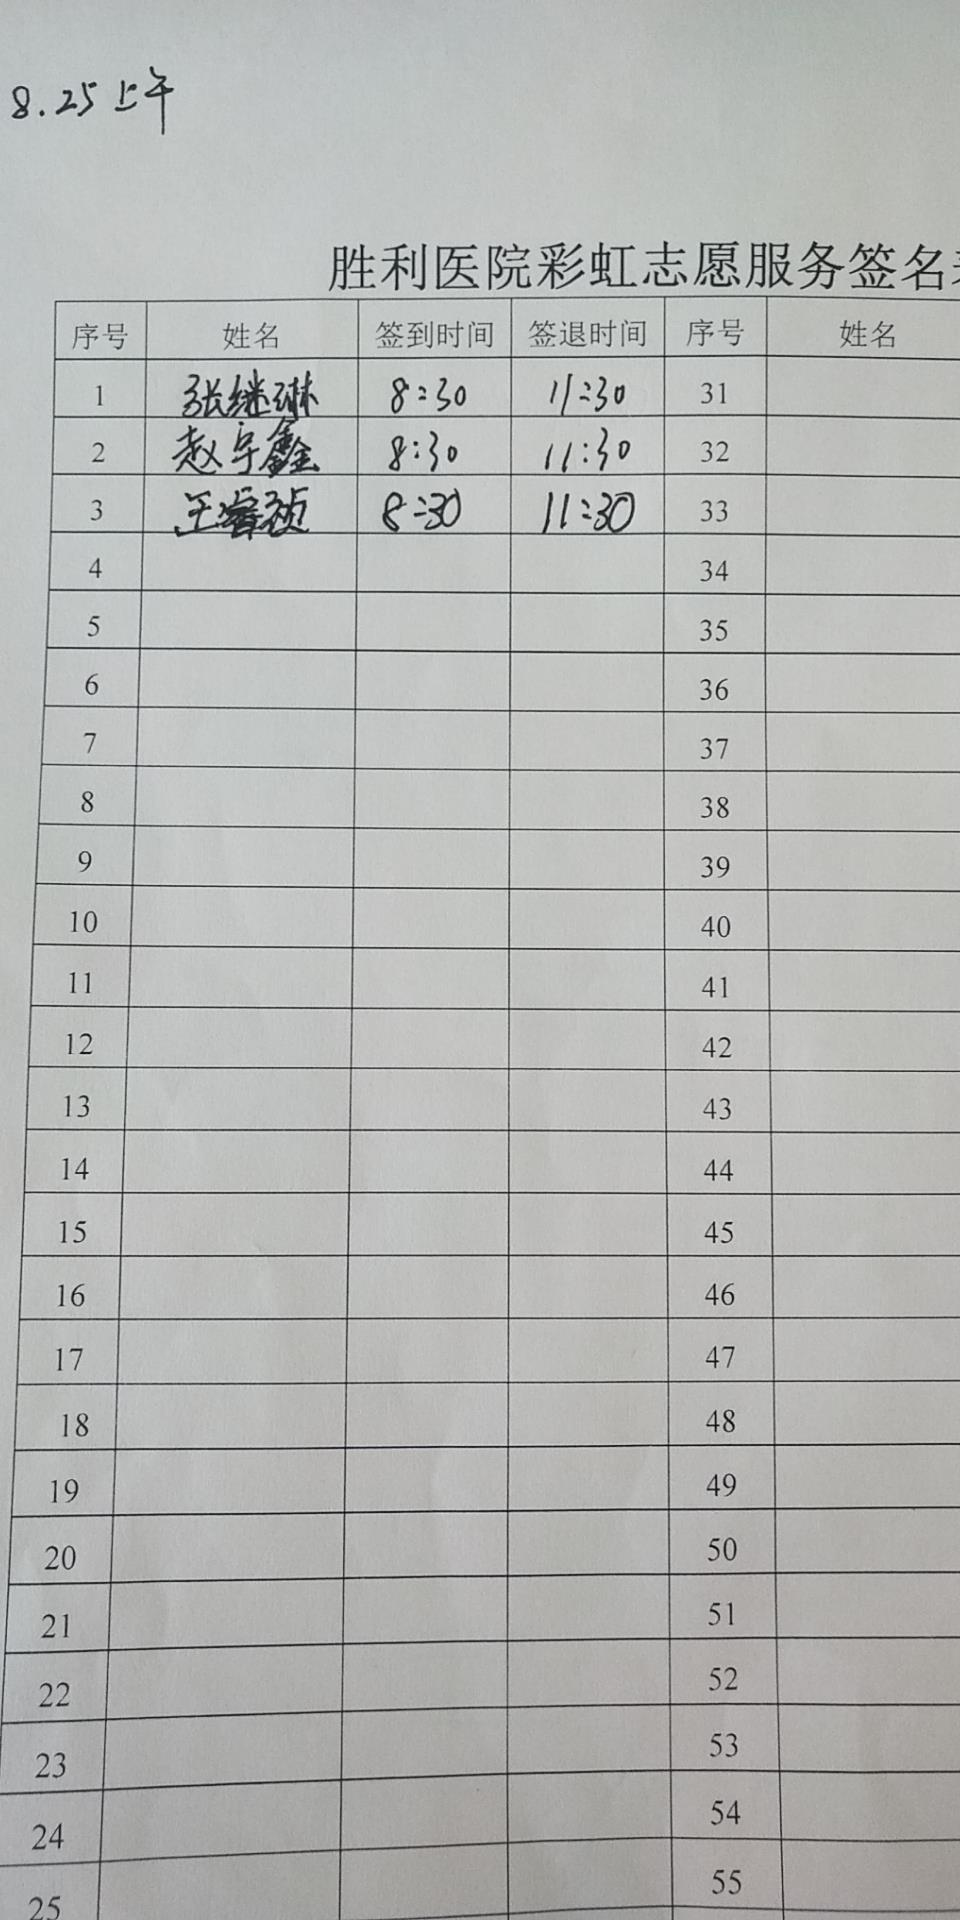 8.25上午
胜利医院彩虹志愿服务签名表
序号 姓名 签到时间 签退时间 序号 姓名
1 张继琳 8:30 11:30 31
2 赵宇鑫 8:30 11:30 32
3 王睿祯 8:30 11:30 33
4 34
5 35
6 36
7 37
8 38
9 39
10 40
11 41
12 42
13 43
14 44
15 45
16 46
17 47
18 48
19 49
20 50
21 51
22 52
23 53
24 54
25 55